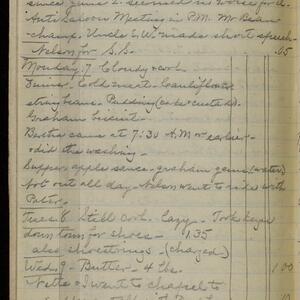 Anti Saloon Meeting in P.M. Mr Bean
champ. Uncle E.W. made short speech-
Nelson for S.S. .05
Monday 7 Cloudy cool
Dinner. Cold meat - Cauliflower
string beans. Pudding (cake custard)
Graham biscuit -
Bertha came at 7:30 A.M or earlier
- did the washing -
Supper apple sauce - graham gems (water)
Not out all day - Nelson went to ride with
Peter.
Tues 8 Still cool - Lazy - Took
down town for shoes - 1.35
also shoestrings - (charged)
Wed 9 - Butter - 4 lbs. 1.00
Nette & I went to chapel to